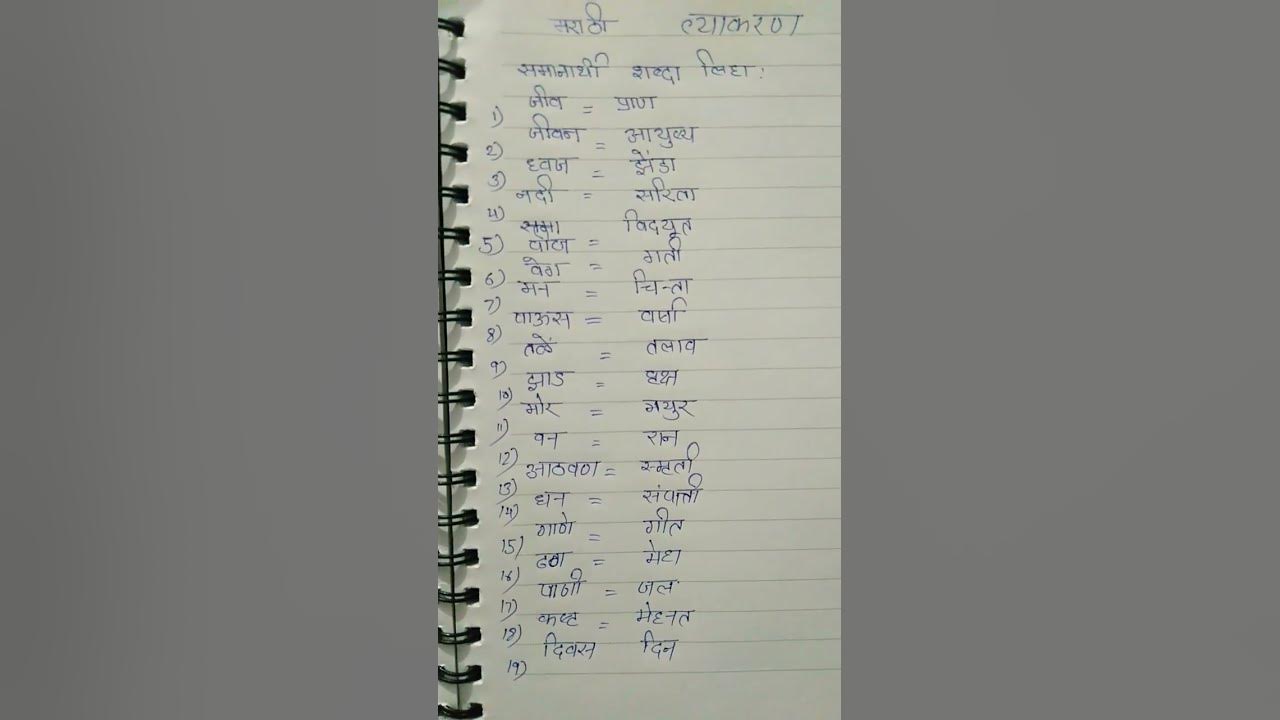 मराठी व्याकरण
समानार्थी शब्दा लिहा :
1) जीव = प्राण
2) जीवन = आयुष्य
3) ध्वज = झेंडा
4) नदी = सरिता
5) वीज = विदयूत
6) वेग = गती
7) मन = चिन्ता
8) पाऊस = वर्षा
9) तळे = तलाव
10) झाड = वृक्ष
11) मोर = मयुर
12) वन = रान
13) आठवण = स्मृती
14) धन = संपत्ती
15) गाणे = गीत
16) ढग = मेघ
17) पाणी = जल
18) कष्ट = मेहनत
19) दिवस दिन